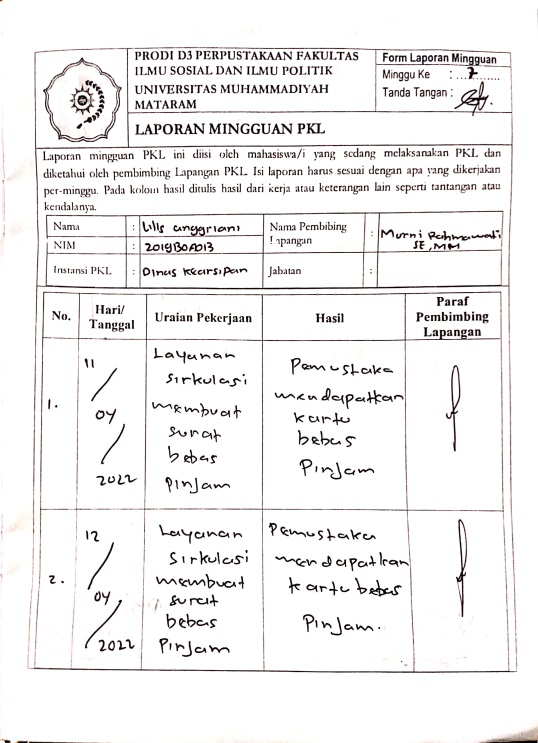 PRODI D3 PERPUSTAKAAN FAKULTAS
ILMU SOSIAL DAN ILMU POLITIK
UNIVERSITAS MUHAMMADIYAH
MATARAM
LAPORAN MINGGUAN PKL
Form Laporan Mingguan
Minggu Ke : ...7.........
Tanda Tangan :
Laporan mingguan PKL ini diisi oleh mahasiswa/i yang sedang melaksanakan PKL dan
diketahui oleh pembimbing Lapangan PKL. Isi laporan harus sesuai dengan apa yang dikerjakan
per-minggu. Pada kolom hasil ditulis hasil dari kerja atau keterangan lain seperti tantangan atau
kendalanya.
Nama : Lilis anggriani
NIM : 2019B0A013
Instansi PKL : Dinas Kearsipan
Nama Pembibing
Lapangan : Murni Rahmawati
SE, MM
Jabatan :
No.
Hari/
Tanggal
Uraian Pekerjaan
Hasil
Paraf
Pembimbing
Lapangan
1.
11
/
04
/
2022
Layanan
sirkulasi
membuat
surat
bebas
pinjam
Pemustaka
mendapatkan
kartu
bebas
Pinjam
2.
12
/
04
/
2022
Layanan
sirkulasi
membuat
surat
bebas
Pinjam
Pemustaka
mendapatkan
kartu bebas
Pinjam.